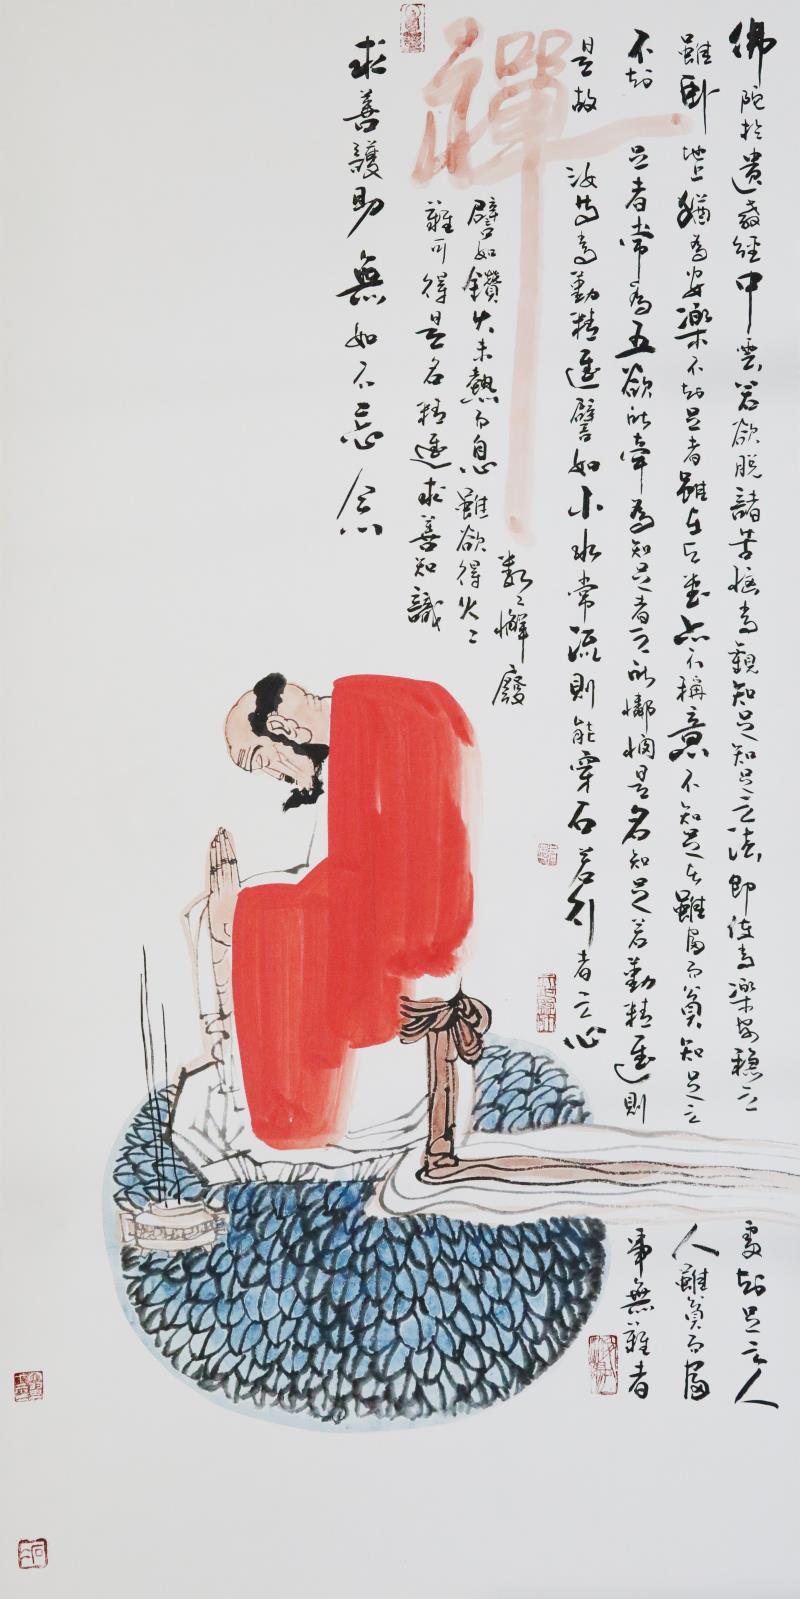 佛陀於遺教經中雲若欲脫諸苦惱當觀知足知足之法即是富樂安穩之
處知足之人
雖臥地上猶為安樂不知足者雖在天堂亦不稱意不知足者雖富而貧知足之
人雖貧而富
不知足者常為五欲所牽為知足者之所憐憫是名知足若勤精進則
事無難者
是故汝等當勤精進譬如小水常流則能穿石若行者之心
數〻懈廢
譬如鑽火未熱而息雖欲得火〻
難可得是名精進求善知識
禪
求善護助無如不忘念